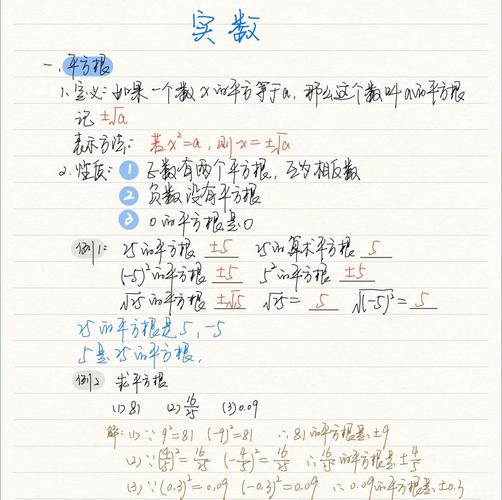 实数
一. 平方根
1. 定义: 如果一个数x的平方等于a, 那么这个数叫a的平方根
记 ±√a
表示方法: 若x²=a, 则x=±√a
2. 性质: ① 正数有两个平方根, 互为相反数
② 负数没有平方根
③ 0的平方根是0
例1: 25的平方根 ±5 25的算术平方根 5
(-5)²的平方根 ±5 5²的平方根 ±5
√25的平方根 ±√5 √25= 5 √(-5)²= 5
25的平方根是5, -5
5是25的平方根,
例2 求平方根
(1) 81 (2) 16/25 (3) 0.09
解: (1) ∵ 9²=81 (-9)²=81 ∴ 81的平方根是±9
(2) ∵ (4/5)²=16/25 (-4/5)²=16/25 ∴ 16/25的平方根是±4/5
(3) ∵ (0.3)²=0.09 (-0.3)²=0.09 ∴ 0.09的平方根是±0.3